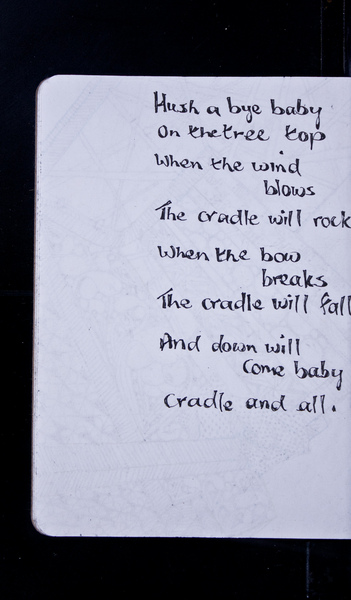 Hush a bye baby
On the tree top
When the wind
blows
The cradle will rock
When the bow
breaks
The cradle will fall
And down will
Come baby
Cradle and all.